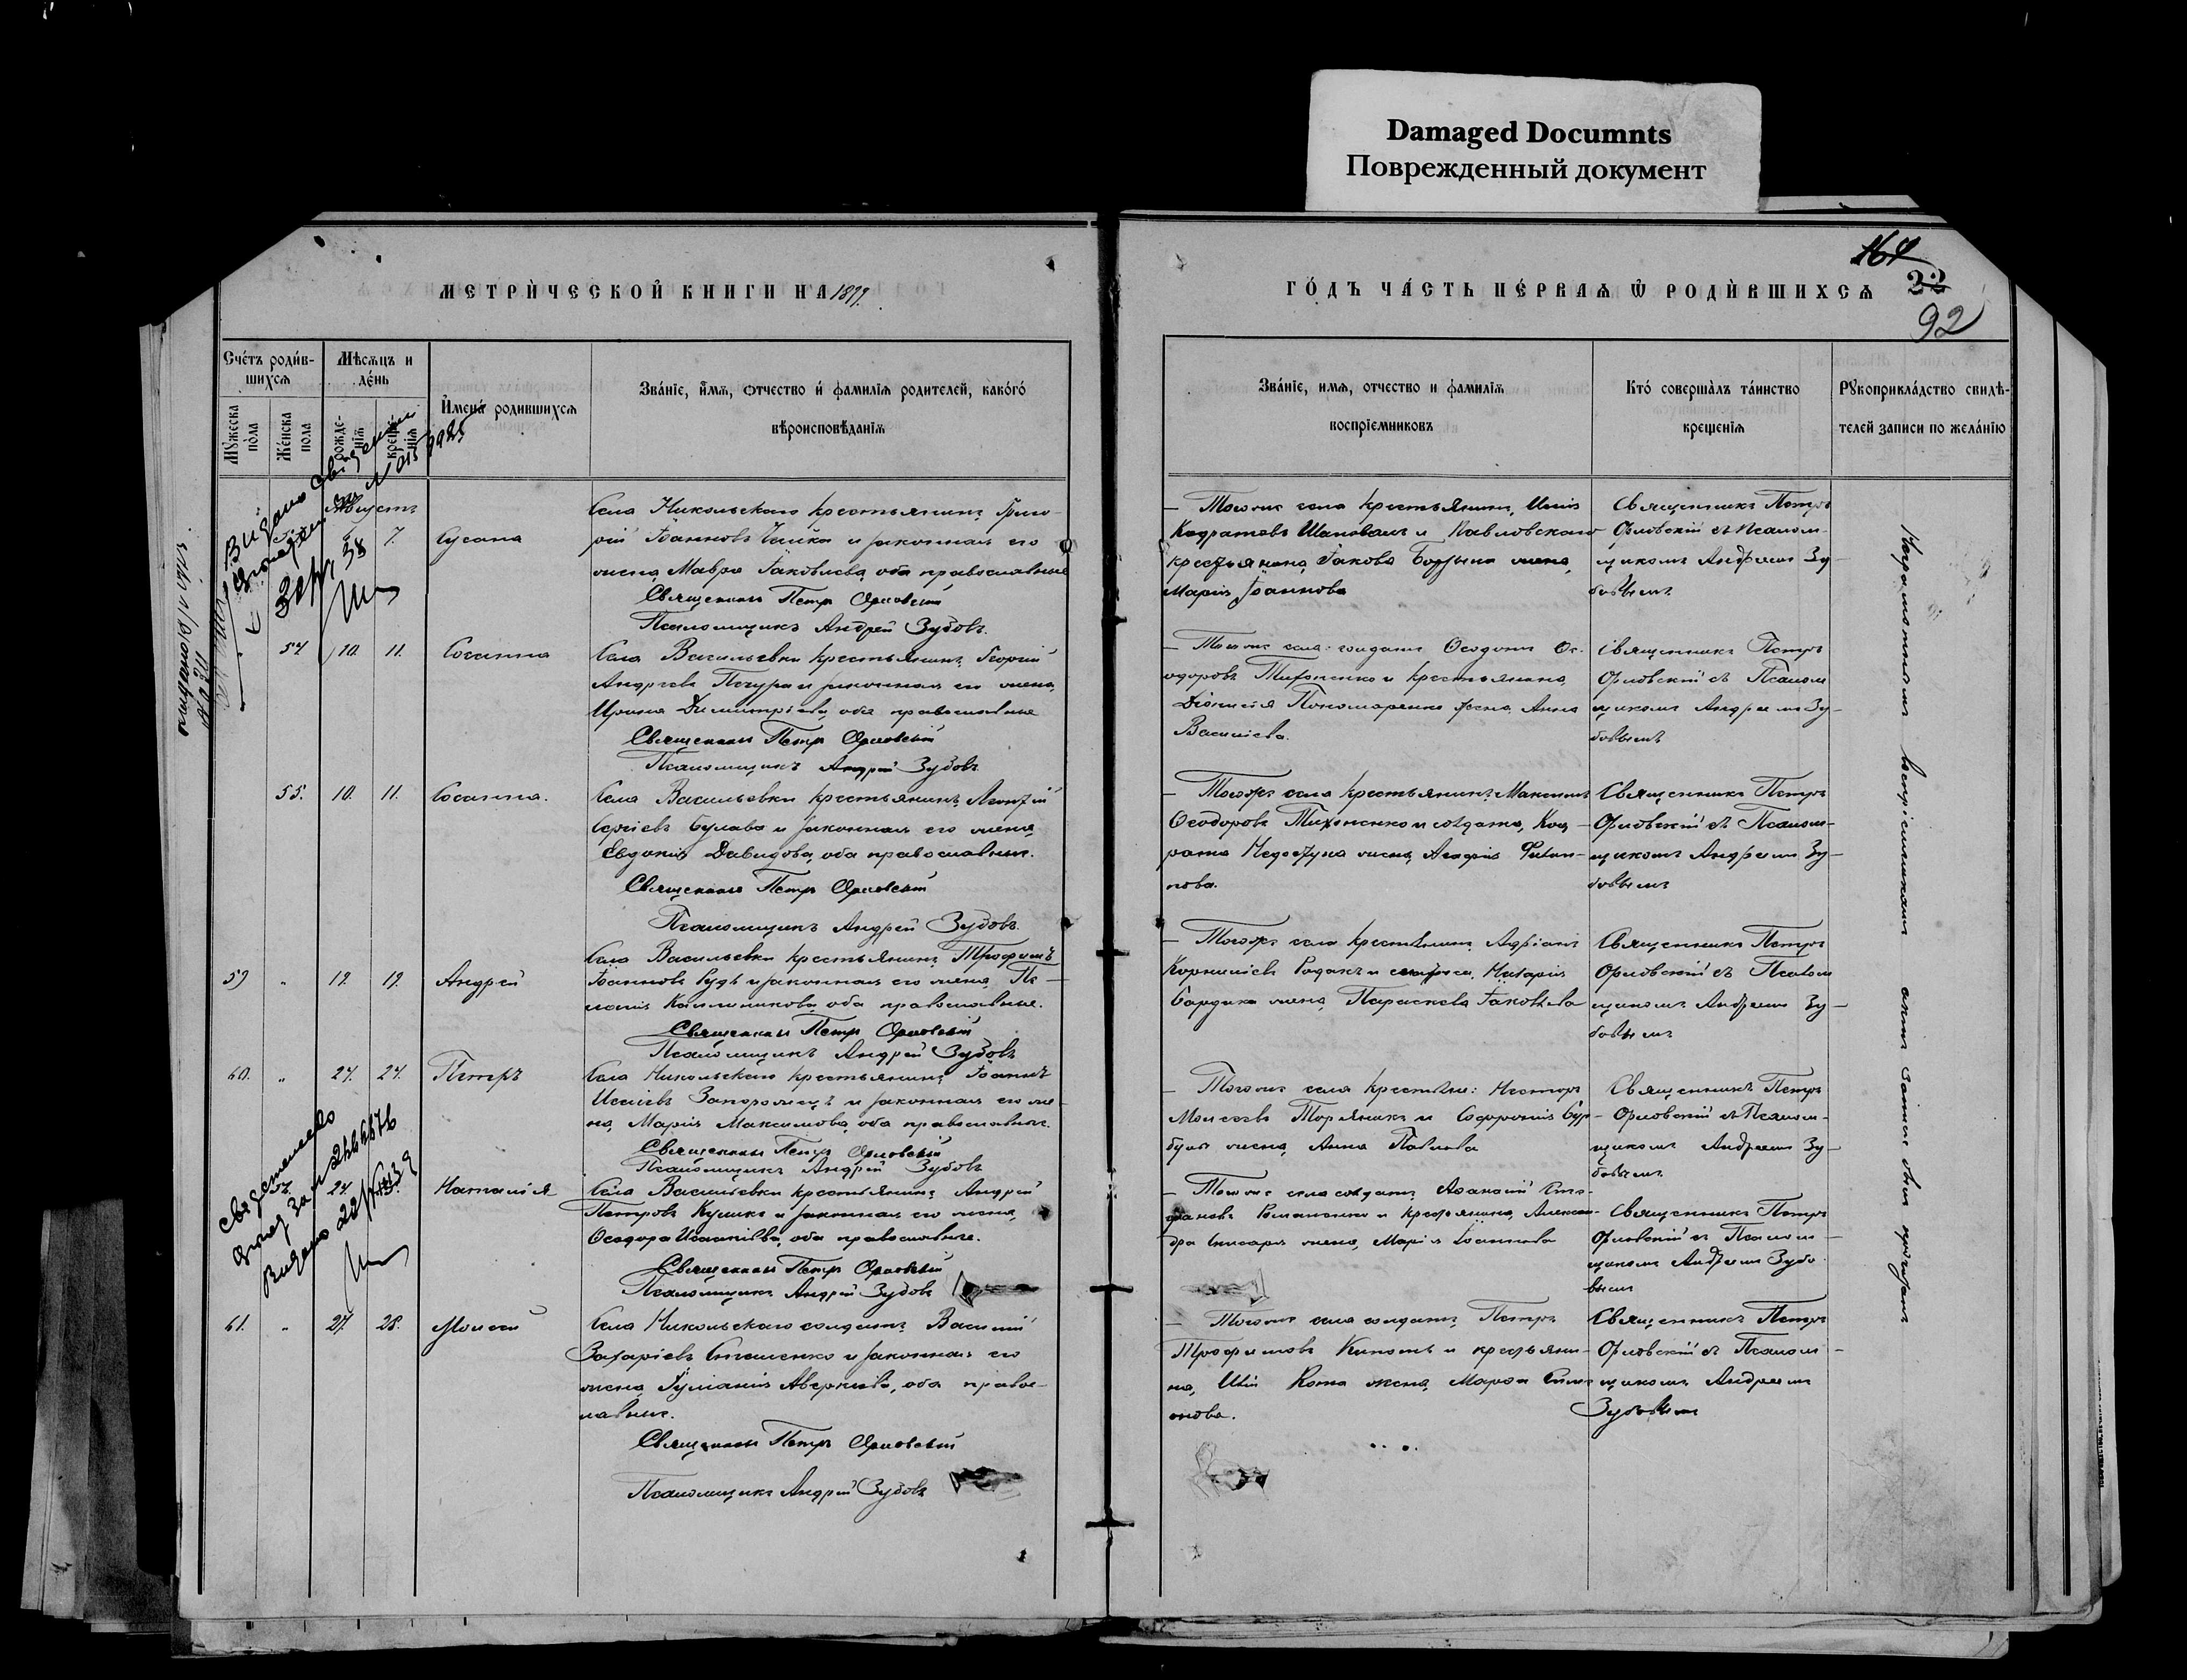 Damaged Documnts
Поврежденный документ
164
22
92
МЕТРИ́ЧЕСКОЙ КНИГИ НА 1899
ГО́ДЪ ЧА́СТЬ ПЕ́РВАѦ Ѡ РОДИ́ВШИХСѦ
Сче́тъ роди́в-
шихсѧ
Мѣсѧцъ и
де́нь
Мꙋ́жеска
по́ла
Же́нска
пола
рожде-
нїѧ
креще-
нїѧ
И҆мена̀ родившихсѧ
Зва́нїе, и҆́мѧ, ѻтчество и҆ фамилїѧ родителей, како́гѡ
вѣроисповѣ́данїѧ
Зва́нїе, имѧ, отчество и фамилїѧ
воспрїемниковъ
Кто́ соверша̀лъ та́инство
крещенїѧ
Рꙋкоприкла́дство свидѣ-
телей записи по жела́нїю
Августъ
7.
Сусанна
Села Никольскаго крестьянинъ Григо-
рій Іоанновъ Чайка и законная его
жена Мавра Іаковлева, оба православные
Священникъ Петръ Орловскій
Псаломщикъ Андрей Зубовъ.
Тогоже села крестьянинъ
и Павловскаго
крестьянина Іакова жена
Марія Іоаннова
Священникъ Петръ
Орловскій съ Псалом-
щикомъ Андреемъ Зу-
бовымъ
54
10.
11.
Сосанна
Села Васильевки крестьянинъ Георгій
Андреевъ Печура и законная его жена
Ирина Димитріева, оба православные
Священникъ Петръ Орловскій
Псаломщикъ Андрей Зубовъ
Тогоже села солдатъ Ѳеодотъ Ѳе-
одоровъ Тихоненко и крестьянина
Діонисія Пономаренко жена Анна
Василіева.
Священникъ Петръ
Орловскій съ Псалом
щикомъ Андреемъ Зу-
бовымъ
55.
10.
11.
Сосанна.
Села Васильевки крестьянинъ Леонтій
Сергіевъ Булава и законная его жена
Евдокія Давидова, оба православные.
Священникъ Петръ Орловскій
Псаломщикъ Андрей Зубовъ.
Тогоже села крестьянинъ Максимъ
Ѳеодоровъ Тихоненко и солдата
жена Агафія Филип-
пова.
Священникъ Петръ
Орловскій съ Псалом-
щикомъ Андреемъ Зу-
бовымъ
59
"
19.
19.
Андрей
Села Васильевки крестьянинъ Трофимъ
Іоанновъ Рудь и законная его жена Пе-
лагія Каллиникова, оба православные.
Священникъ Петръ Орловскій
Псаломщикъ Андрей Зубовъ
Тогоже села крестьянинъ Адріанъ
Корниліевъ
жена Параскева Іаковлева
Священникъ Петръ
Орловскій съ Псалом
щикомъ Андреемъ Зу-
бовымъ
60.
"
24.
24.
Петръ
Села Никольскаго крестьянинъ Іоаннъ
Исаіевъ Запорожецъ и законная его же-
на Марія Максимова, оба православные.
Священникъ Петръ Орловскій
Псаломщикъ Андрей Зубовъ
Тогоже села крестьяне: Несторъ
Моисеевъ и Софронія Бур-
жена Анна Павлова
Священникъ Петръ
Орловскій съ Псалом-
щикомъ Андреемъ Зу-
бовымъ
24.
Наталія
Села Васильевки крестьянинъ Андрей
Петровъ Куликъ и законная его жена
Ѳеодора оба православные.
Священникъ Петръ Орловскій
Псаломщикъ Андрей Зубовъ
Тогоже села солдатъ Аѳанасій Сте-
фановъ Романенко и крестьянина Алексан-
дра жена Марія Іоаннова
Священникъ Петръ
Орловскій съ Псалом-
щикомъ Андреемъ Зубо-
вымъ
61.
"
27.
28.
Моисей
Села Никольскаго солдатъ Василій
Захаріевъ Стешенко и законная его
жена Іуліанія Аверкіева, оба правос-
лавные.
Священникъ Петръ Орловскій
Псаломщикъ Андрей Зубовъ
Тогоже села солдатъ Петръ
Трофимовъ и крестьяни-
на жена Марѳа Симе-
онова.
Священникъ Петръ
Орловскій съ Псалом-
щикомъ Андреемъ
Зубовымъ